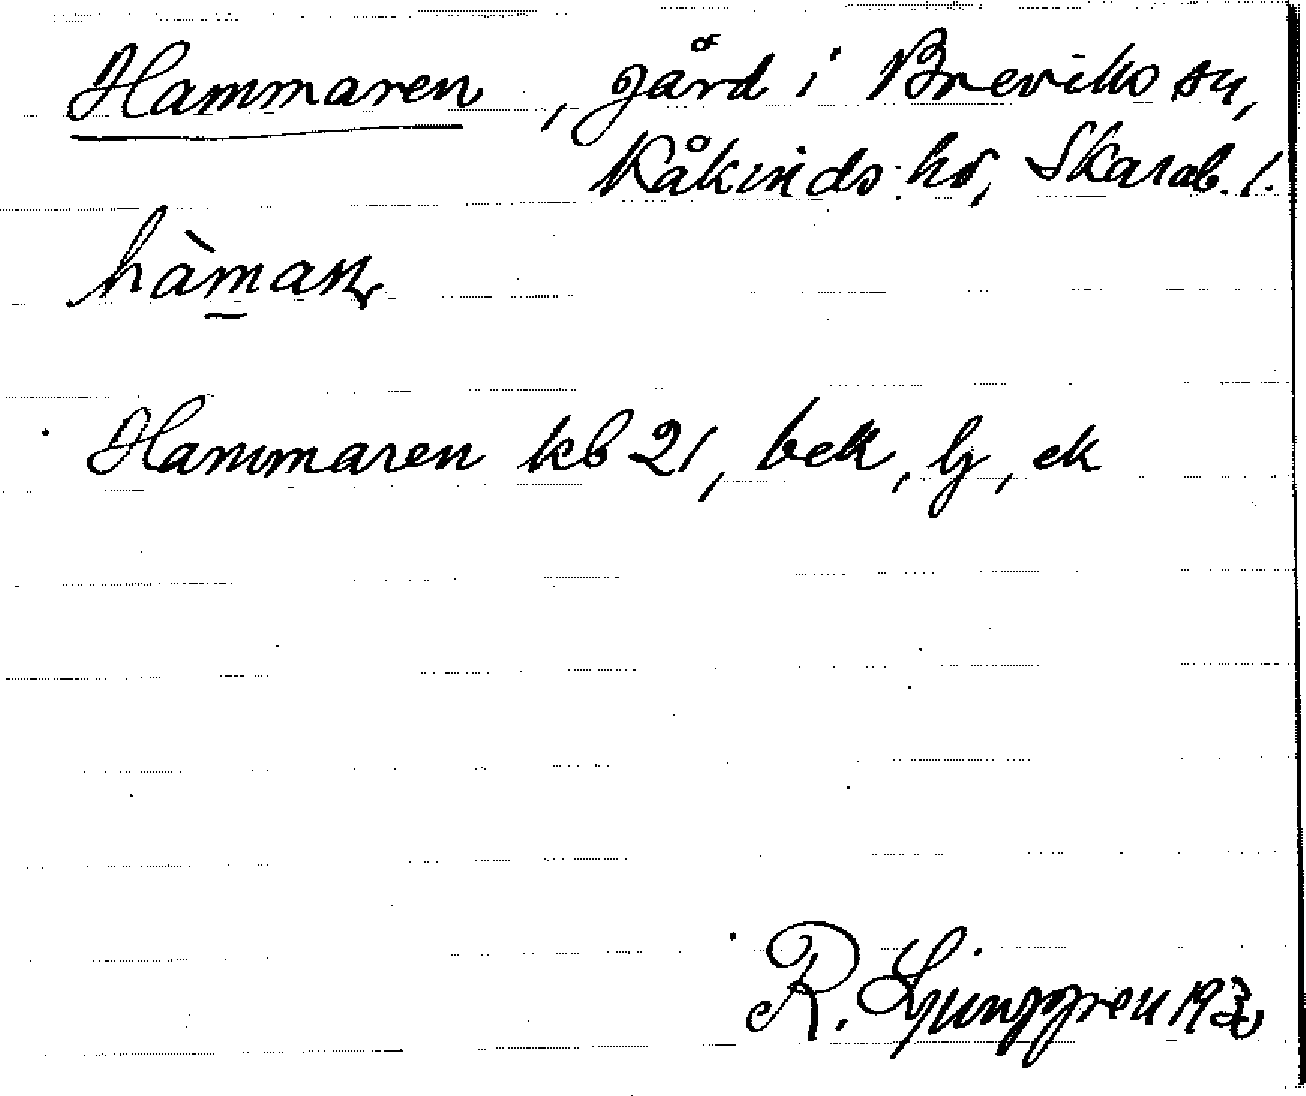 Hammaren, gård i Breviks sn,
Kåkinds hd, Skarab. l.
Hammaren kb 21, bek, lj, ek
R. Ljunggren